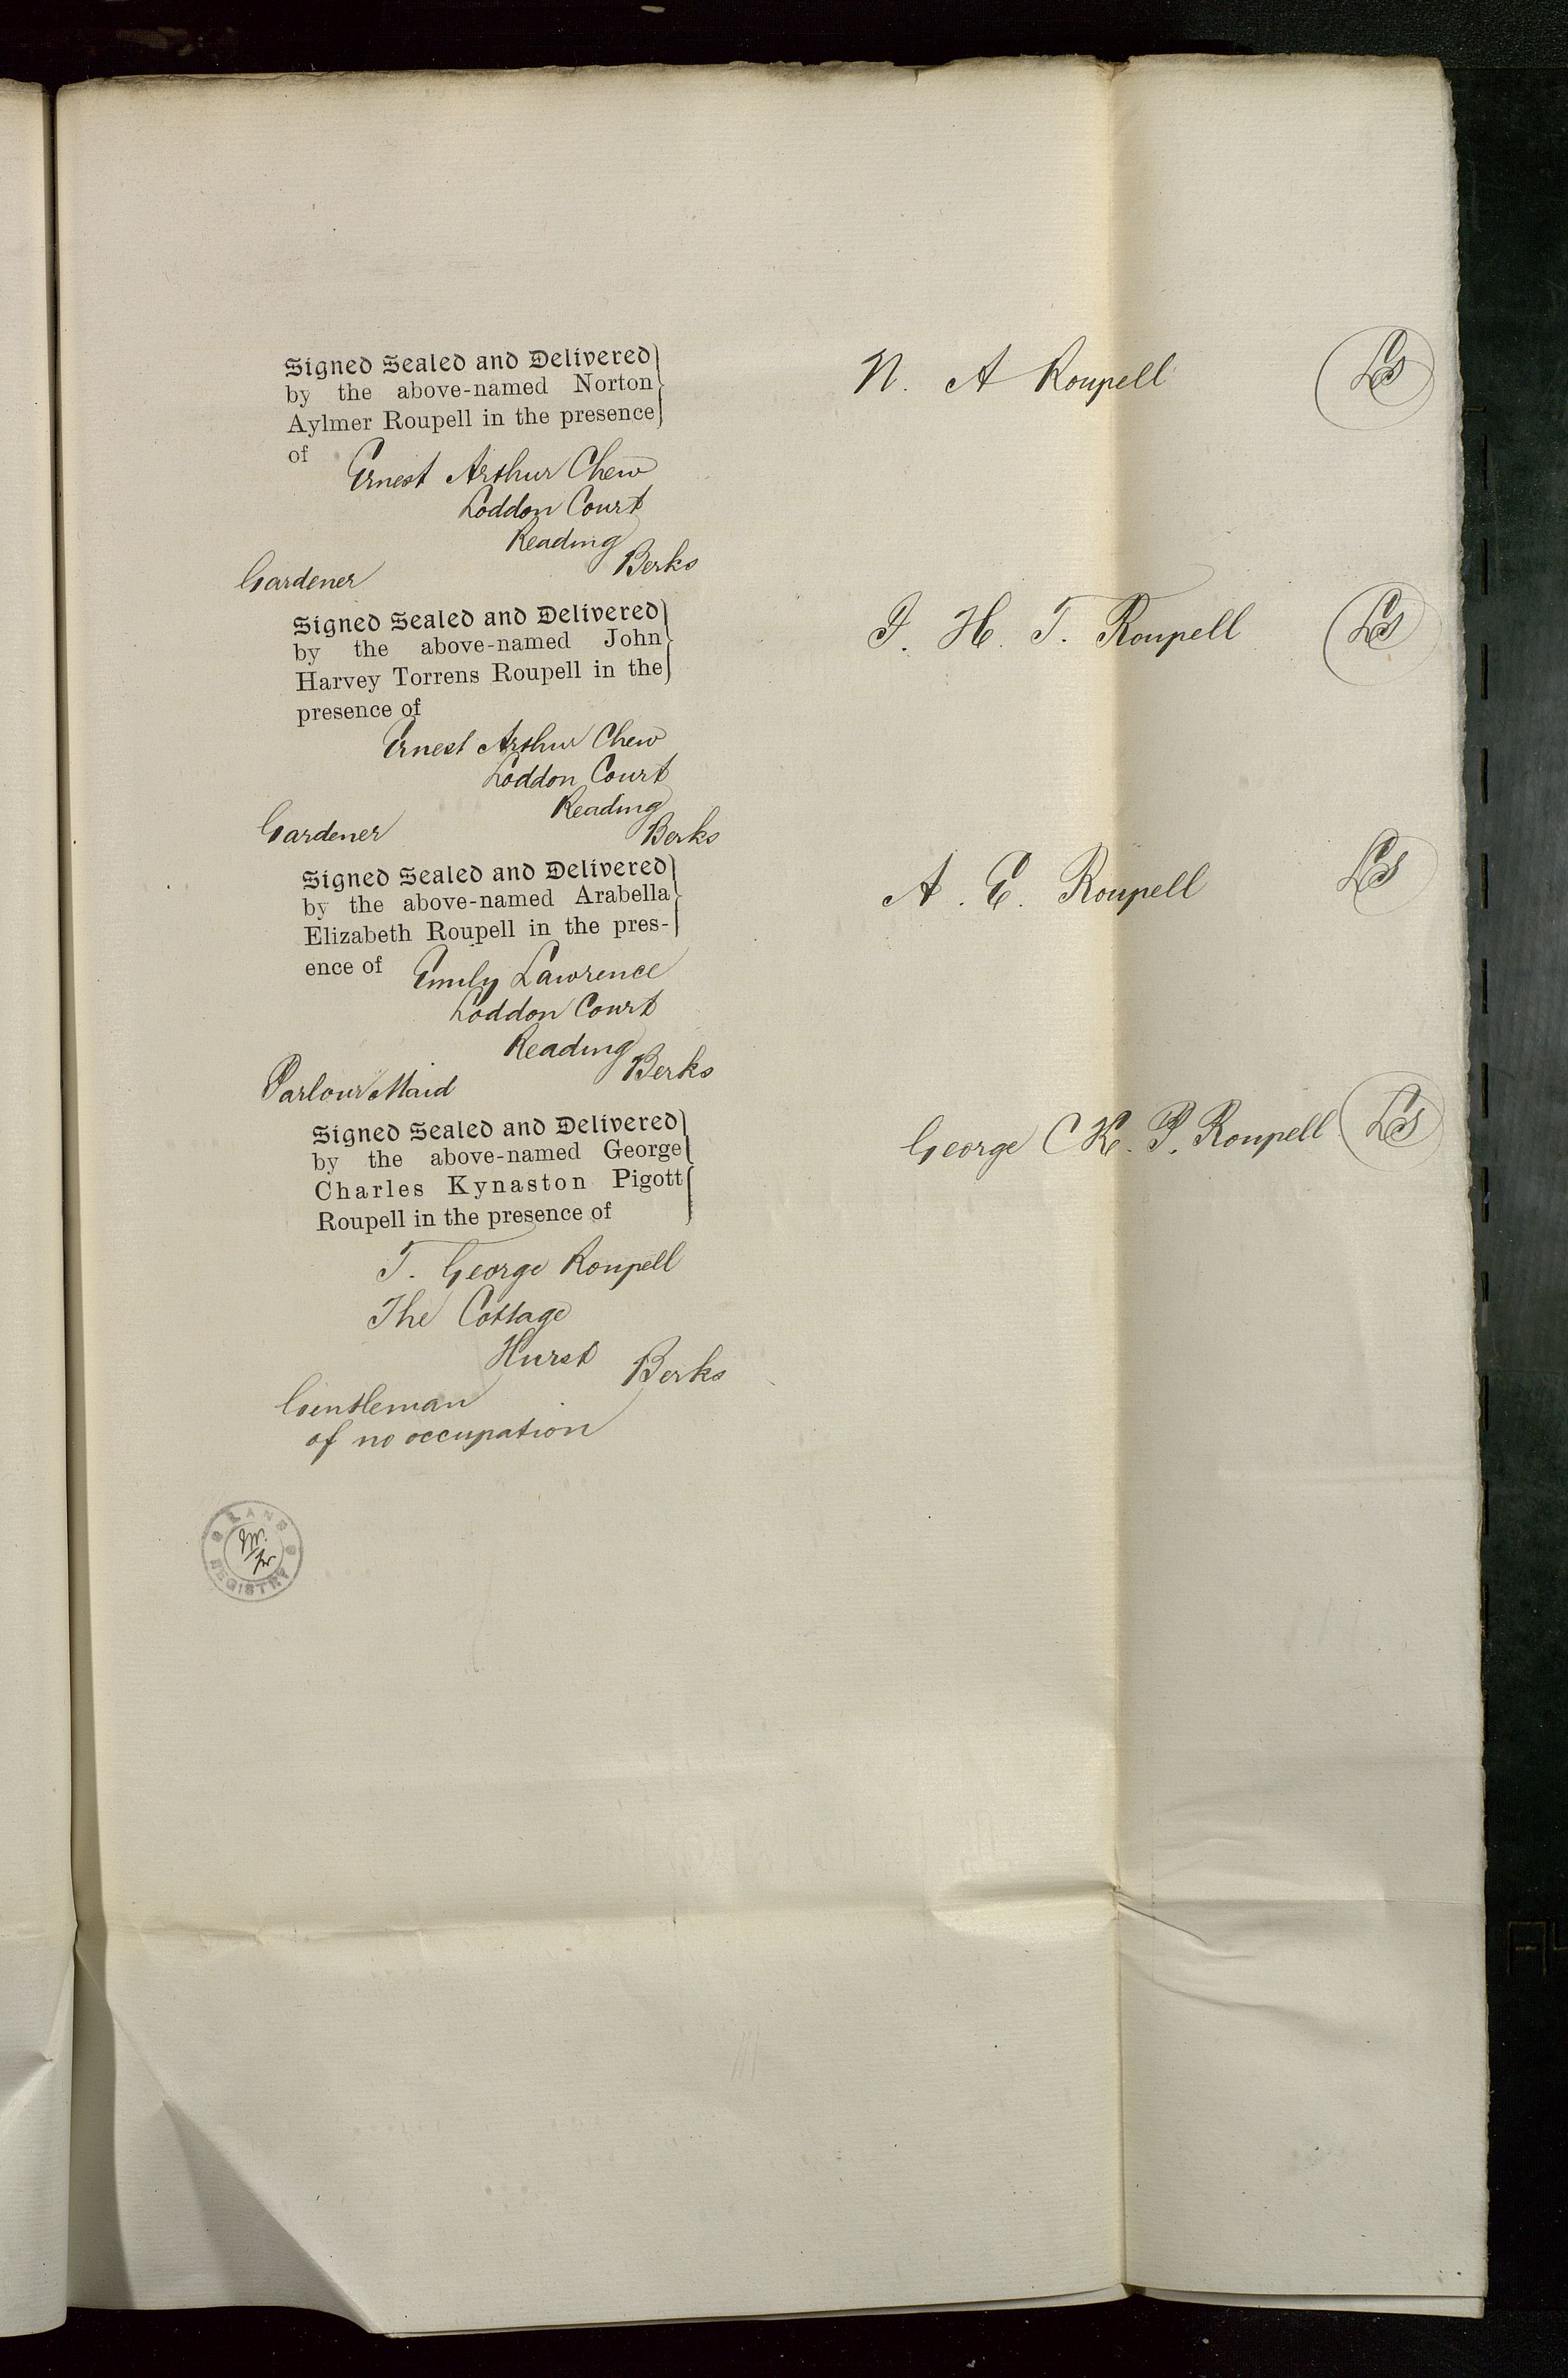 Signed Sealed and Delivered
by the above-named Norton
Aylmer Roupell in the presence
of
Ernest Arthur Chew
Loddon Court
Reading
Berks
Gardener
N. A Roupell
LS
Signed Sealed and Delivered
by the above-named John
Harvey Torrens Roupell in the
presence of
Ernest Arthur Chew
Loddon Court
Reading
Berks
Gardener
J. H. T. Roupell
LS
Signed Sealed and Delivered
by the above-named Arabella
Elizabeth Roupell in the pres-
ence of
Emily Lawrence
Loddon Court
Reading
Berks
Parlour Maid
A. E. Roupell
LS
Signed Sealed and Delivered
by the above-named George
Charles Kynaston Pigott
Roupell in the presence of
T. George Roupell
The Cottage
Hurst Berks
Gentleman
of no occupation
George C K. P. Roupell
LS
REGISTRY